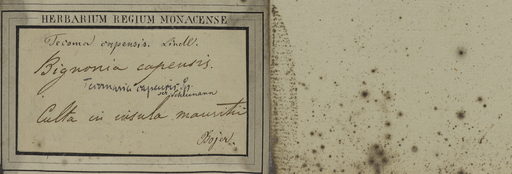 HERBARIUM REGIUM MONACENSE
Tecoma capensis. Lindl.
Bignonia capensis.
Tecomaria capensis Sp.
Schumann
Culta in insula mauritii
Bojer.